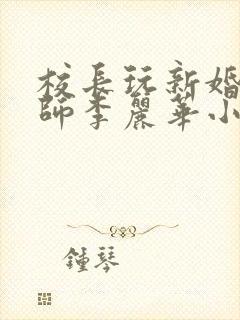 校長玩新婚
師李麗華小
鍾琴